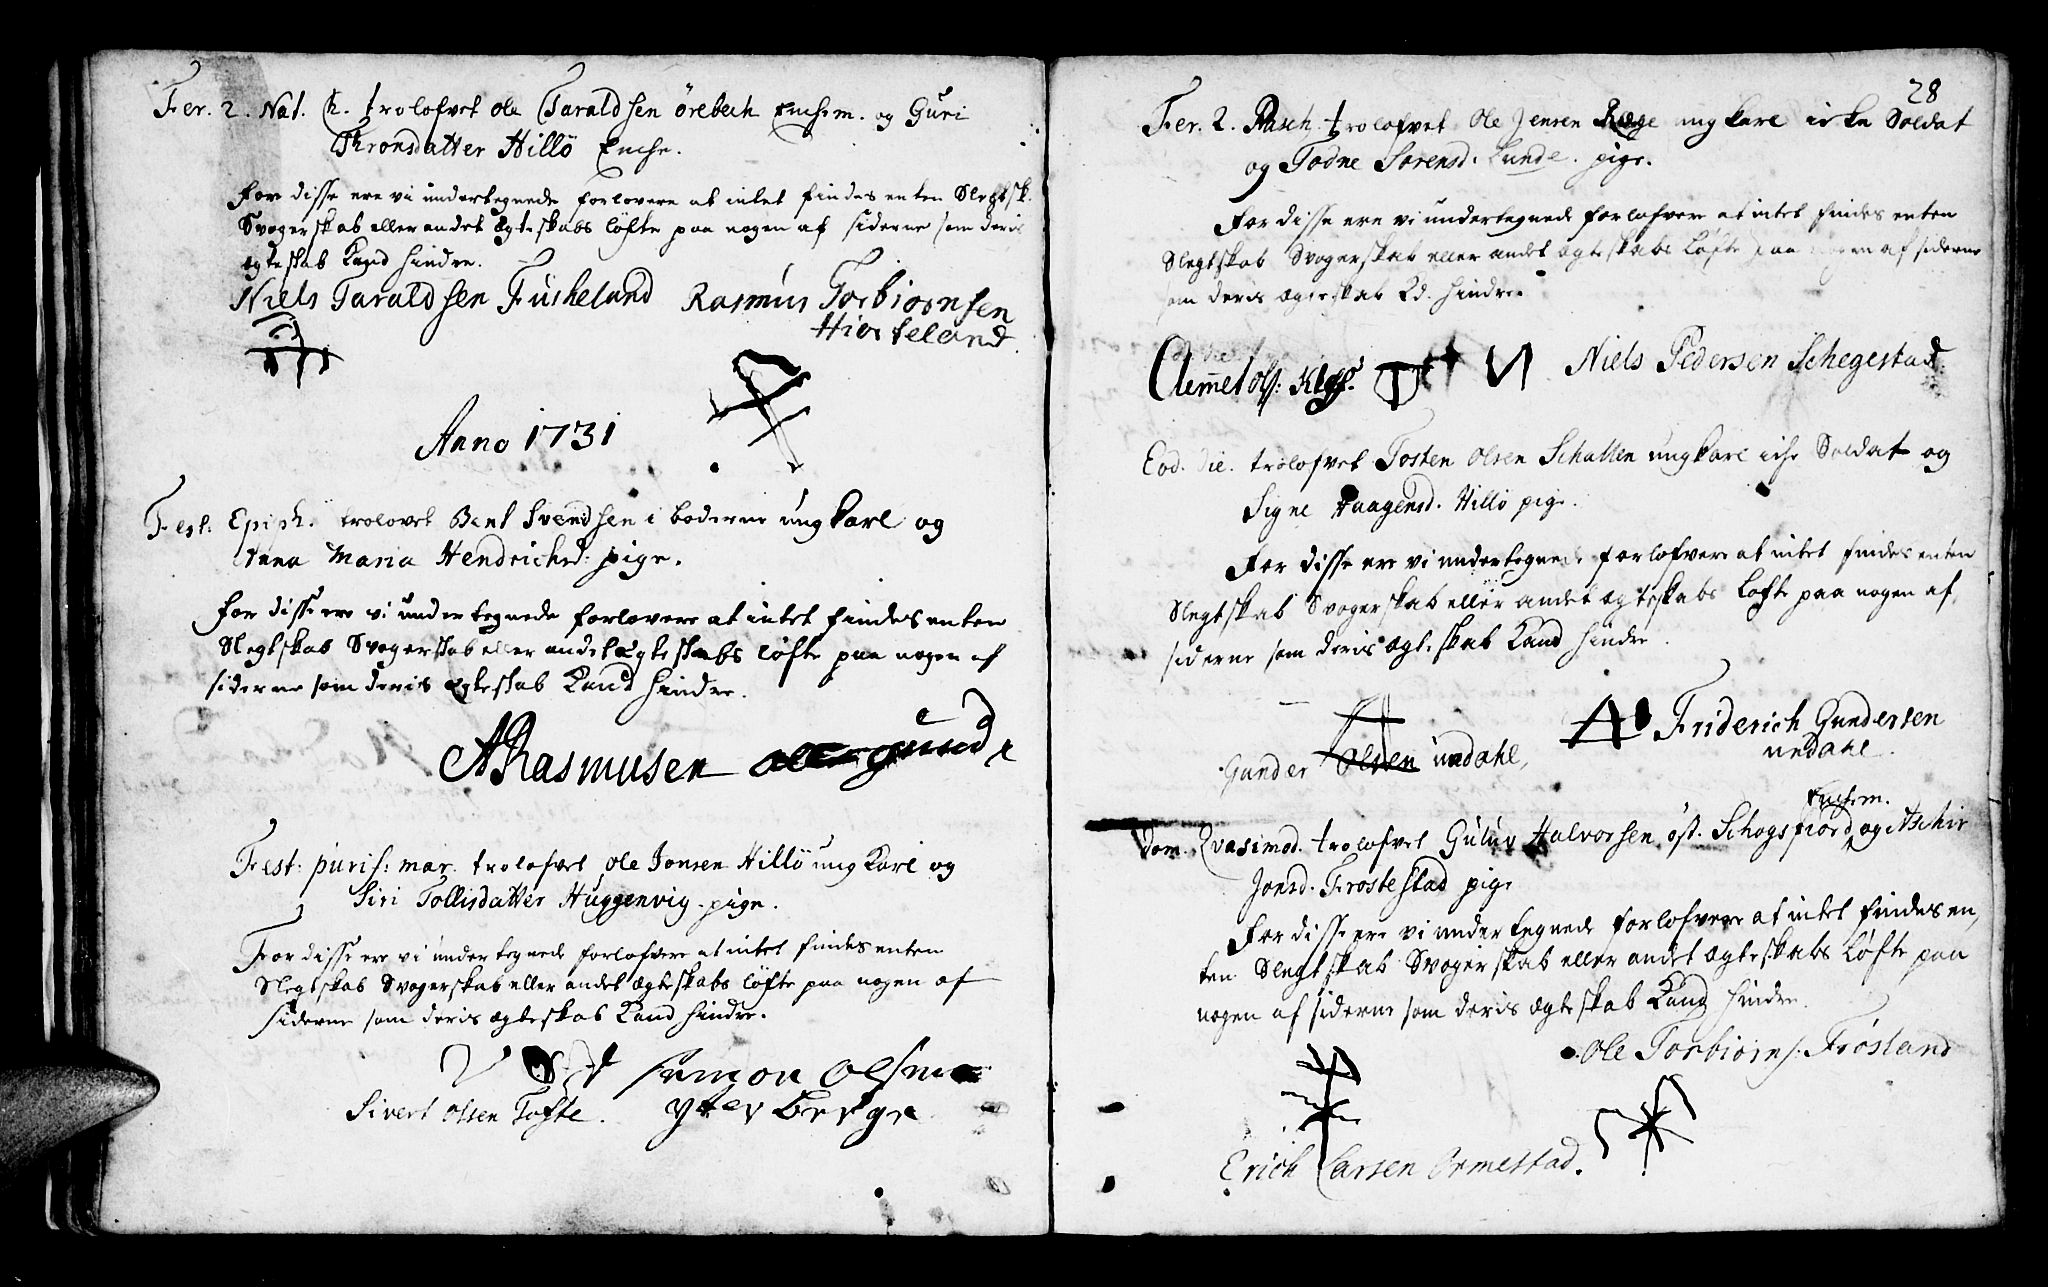 Fer. 2. Nat. Ch. trolofvet Ole Taraldsen Örebech Enchem. og Guri
Thronsdatter Hillö Enche.
For disse ere vi undertegnede forlovere at intet findes enten Slegtsk.
Svogerskab eller andet Ægteskabs løfte paa nogen af siderne som deris
ægteskab Kand hindre.
Niels Taraldsen Fuskeland Rasmus Torbiørnsen
Hiorteland.
Anno 1731
Fest: Epiph. trolovet Bent Svendsen i boderne ungkarl og
Anna Maria Hendrichsd: pige.
For disse ere vi undertegnede forlovere at intet findes enten
Slegtskab Svogerskab eller andet ægteskabs løfte paa nogen af
siderne som deris Egteskab Kand hindre.
ARasmusen
Fest: purif: mar. trolofvet Ole Jonsen Hillö ungKarl og
Siri Tollisdatter Huggenvig pige.
For disse ere vi undertegnede forlofvere at intet findes enten
Slegtskab Svogerskab eller andet ægteskabs løfte paa nogen af
siderne som deris ægteskab Kand hindre.
Simon Olsen
Sivert Olsen Tofte. Ytter berge
28
Fer. 2. Pasch. trolofvet Ole Jensen Røge ungkarl icke Soldat
og Todne Sorensd. Lunde. pige.
For disse ere vi undertegnede forlofvere at intet findes enten
Slegtskab Svogerskab eller andet ægteskabs Løfte paa nogen af siderne
som deris ægteskab Kd. hindre.
Clemet Ols: Niels Pedersen Schegestad.
Eod. die. trolofvet Tosten Olsen Schatten ungkarl iche Soldat og
Signe Haagensd. Hillö pige.
For disse ere vi undertegnede forlofvere at intet findes enten
Slegtskab Svogerskab eller andet ægteskabs løfte paa nogen af
siderne som deris ægteskab Kand hindre.
Friderich Gundersen
Gunder Olsen undahl, undahl.
Enchem.
Dom. Qvasimod. trolofvet Gulur Halvorsen øst. Schogsfiord, og Aschir
Jonsd. Frostestad pige
For disse ere vi undertegnede forlofvere at intet findes en,
ten Slegtskab Svogerskab eller andet ægteskabs Løfte paa
nogen af siderne som deris ægteskab Kand hindre.
Ole Torbiørns: Frøsland
Erich Larsen Ormestad.